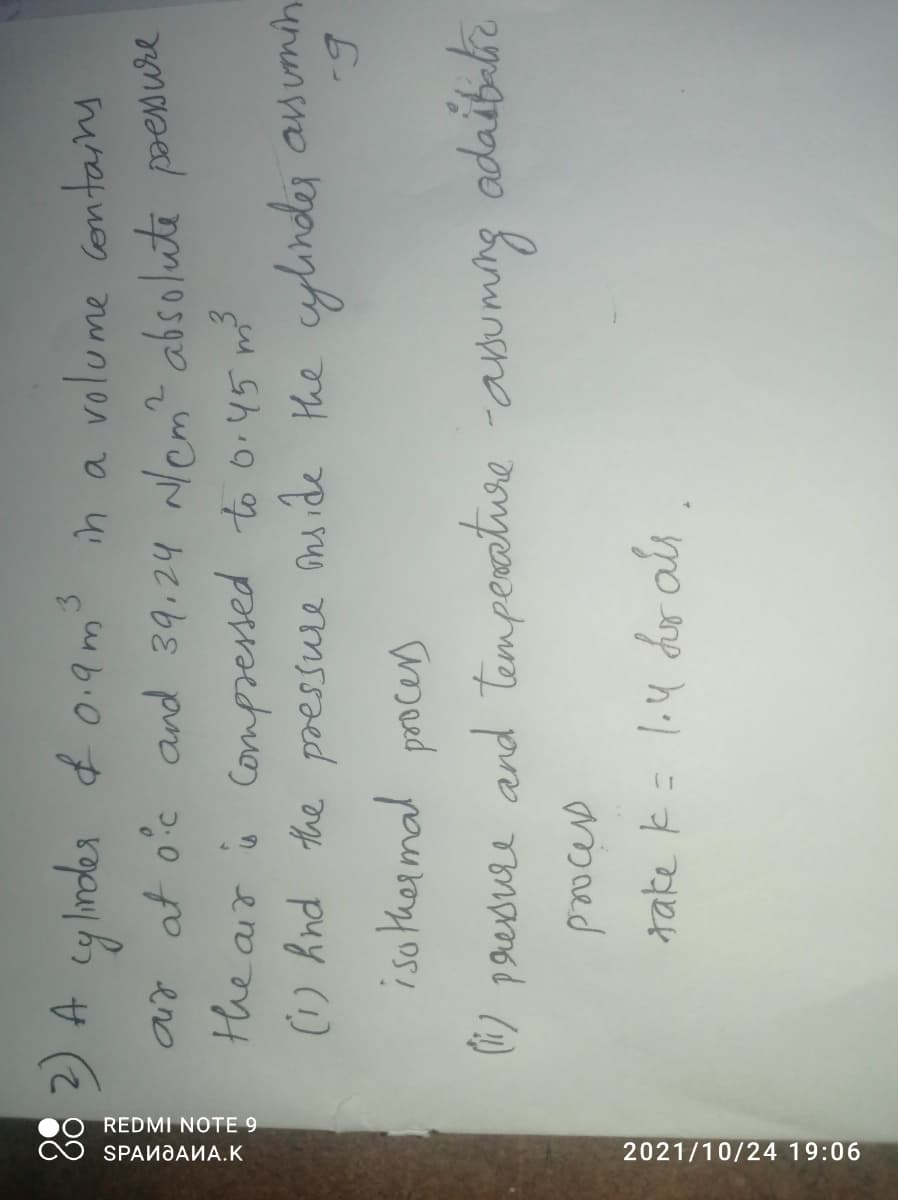 2) A cylinder of 0.9 m³ in a volume contains
air at 0°c and 39.24 N/cm² absolute pressure
the air is compressed to 0.45 m³
(i) find the pressure inside the cylinder assumin
-g
isothermal process
(ii) pressure and temperature - assuming adaibatic
process
take k = 1.4 for air.
REDMI NOTE 9
SPAИƏAИA.K
2021/10/24 19:06